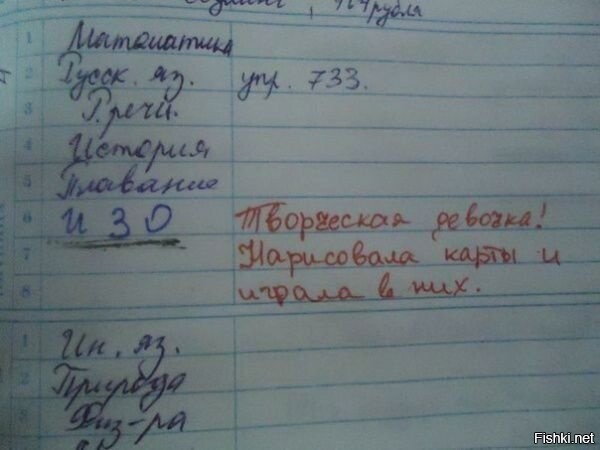 рубля
1 Математика
2 Русск. яз. упр. 733.
3 Р.речи.
4 История
5 Плавание
6 ИЗО Творческая девочка!
7 Нарисовала карты и
8 играла в них.
1 Ин. яз.
2 Природа
3 Физ-ра
Fishki.net